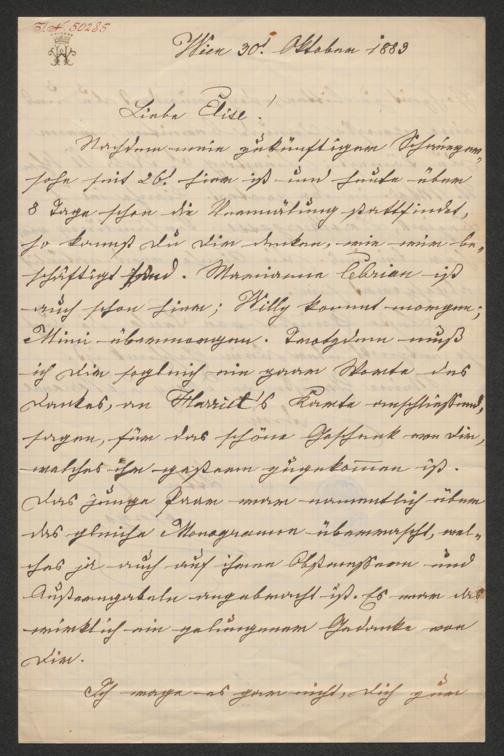 I.N. 50285
Wien 30t Oktober 1883
Liebe Elise!
Nachdem mein zukünftiger Schwieger-
sohn seit 26t hier ist und heute über
8 Tage schon die Vermälung stattfindet,
so kannst Du Dir denken, wie wir be-
schäftigt sind. Marianne Cebrian ist
auch schon hier; Willy kommt morgen;
Mimi übermorgen. Trotzdem muß
ich Dir sogleich ein paar Worte des
Dankes, an 's Karte anschliessend,
sagen, für das schöne Geschenk von Dir,
welches ihr gestern zugekommen ist.
Das junge Paar war namentlich über
das gleiche Monogramm überrascht, wel-
ches ja auch auf ihren Obstmessern und
Austerngabeln angebracht ist. Es war das
wirklich ein gelungener Gedanke von
Dir.
Ich wage es gar nicht, Dich zur